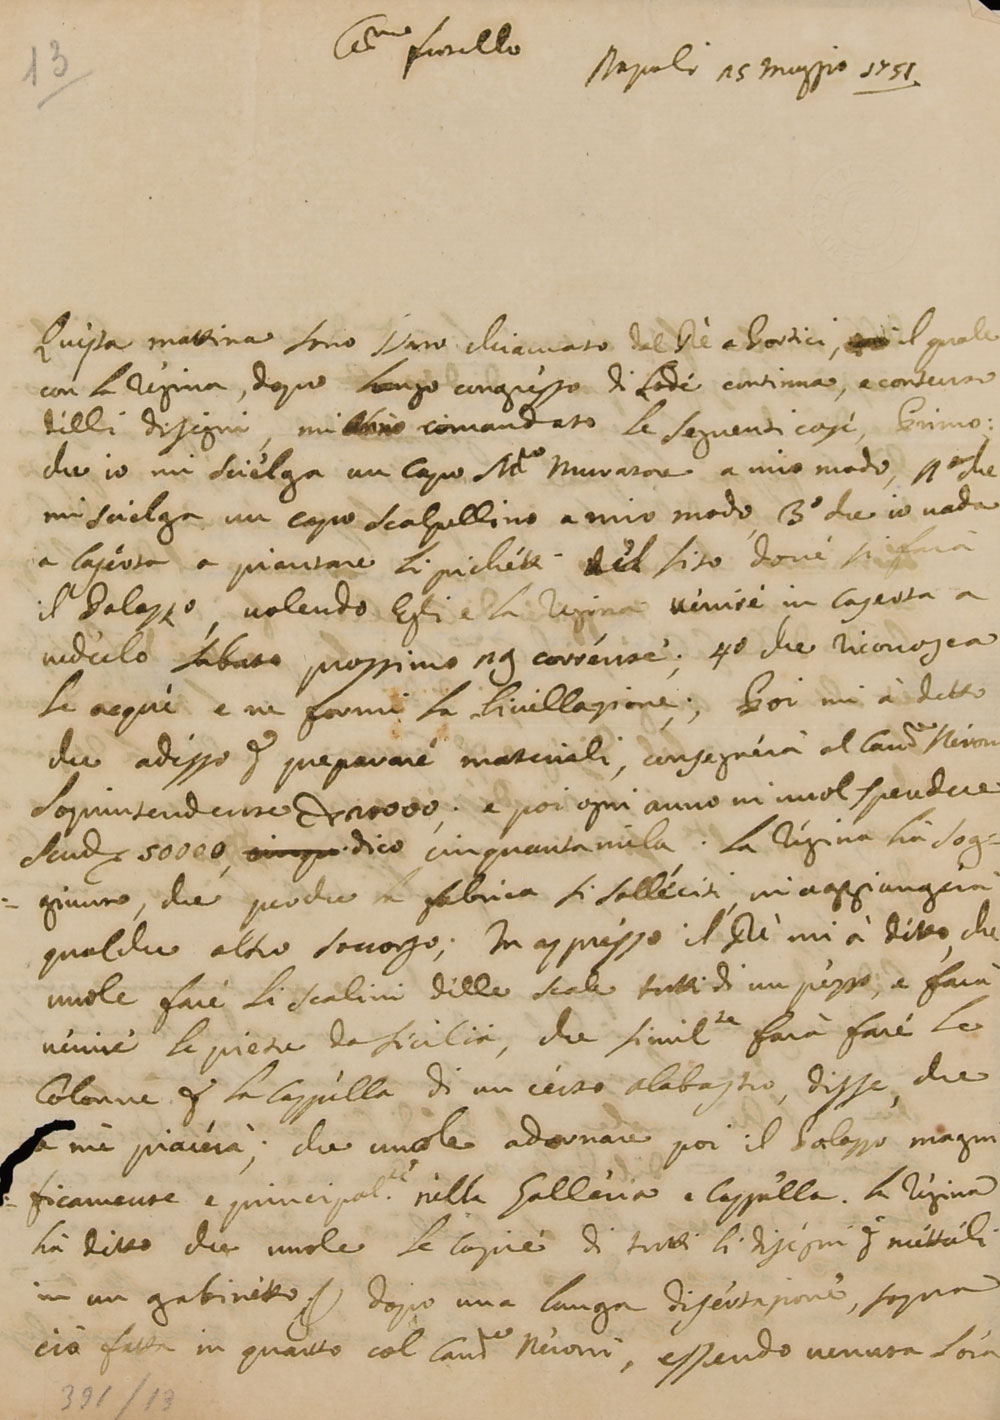 13
Car.mo fratello
Napoli 15 Maggio 1751
Questa mattina sono stato chiamato dal Rè a Portici, il quale
con la Regina, dopo longo congresso di Lode continua, e contenzo
delli disegni, mi comandato le seguenti cose, Primo:
che io mi scielga un Capo M.ro Muratore a mio modo, che
mi scielga un capo scalpellino a mio modo, 3° che io vada
a Caserta a piantare li pichetti nel sito dove si farà
il Palazzo, volendo Egli e la Regina venire in Caserta a
vederlo sabato prossimo 19 corrente; 4° che riconosca
le acque e ne formi la livellazione; Poi mi à detto
che adesso p preparare materiali, consegnerà al Cav.re Neroni
Sopraintendente 20000; e poi ogni anno ni vuol spendere
Scudi 50000, dico cinquanta mila. La Regina hà sog=
=giunto, che perche la fabrica si solleciti, ni aggiungerà
qualche altro soccorso; In appresso il Rè mi à detto, che
vuole fare li scalini delle scale tutti di un pezzo, e farà
venire le pietre da Sicilia, che simil.te farà fare le
Colonne p la Cappella di un certo alabastro, disse, che
a me piacerà; che vuole adornare poi il Palazzo magni
=ficamente e principal.te nella Galleria e Cappella. La Regina
hà detto che vuole le copie di tutti li disegni p metterli
in un gabinetto, dopo una lunga disertazione, sopra
ciò fatta in quarto col Cav.re Neroni, essendo venuta l'ora
391/13